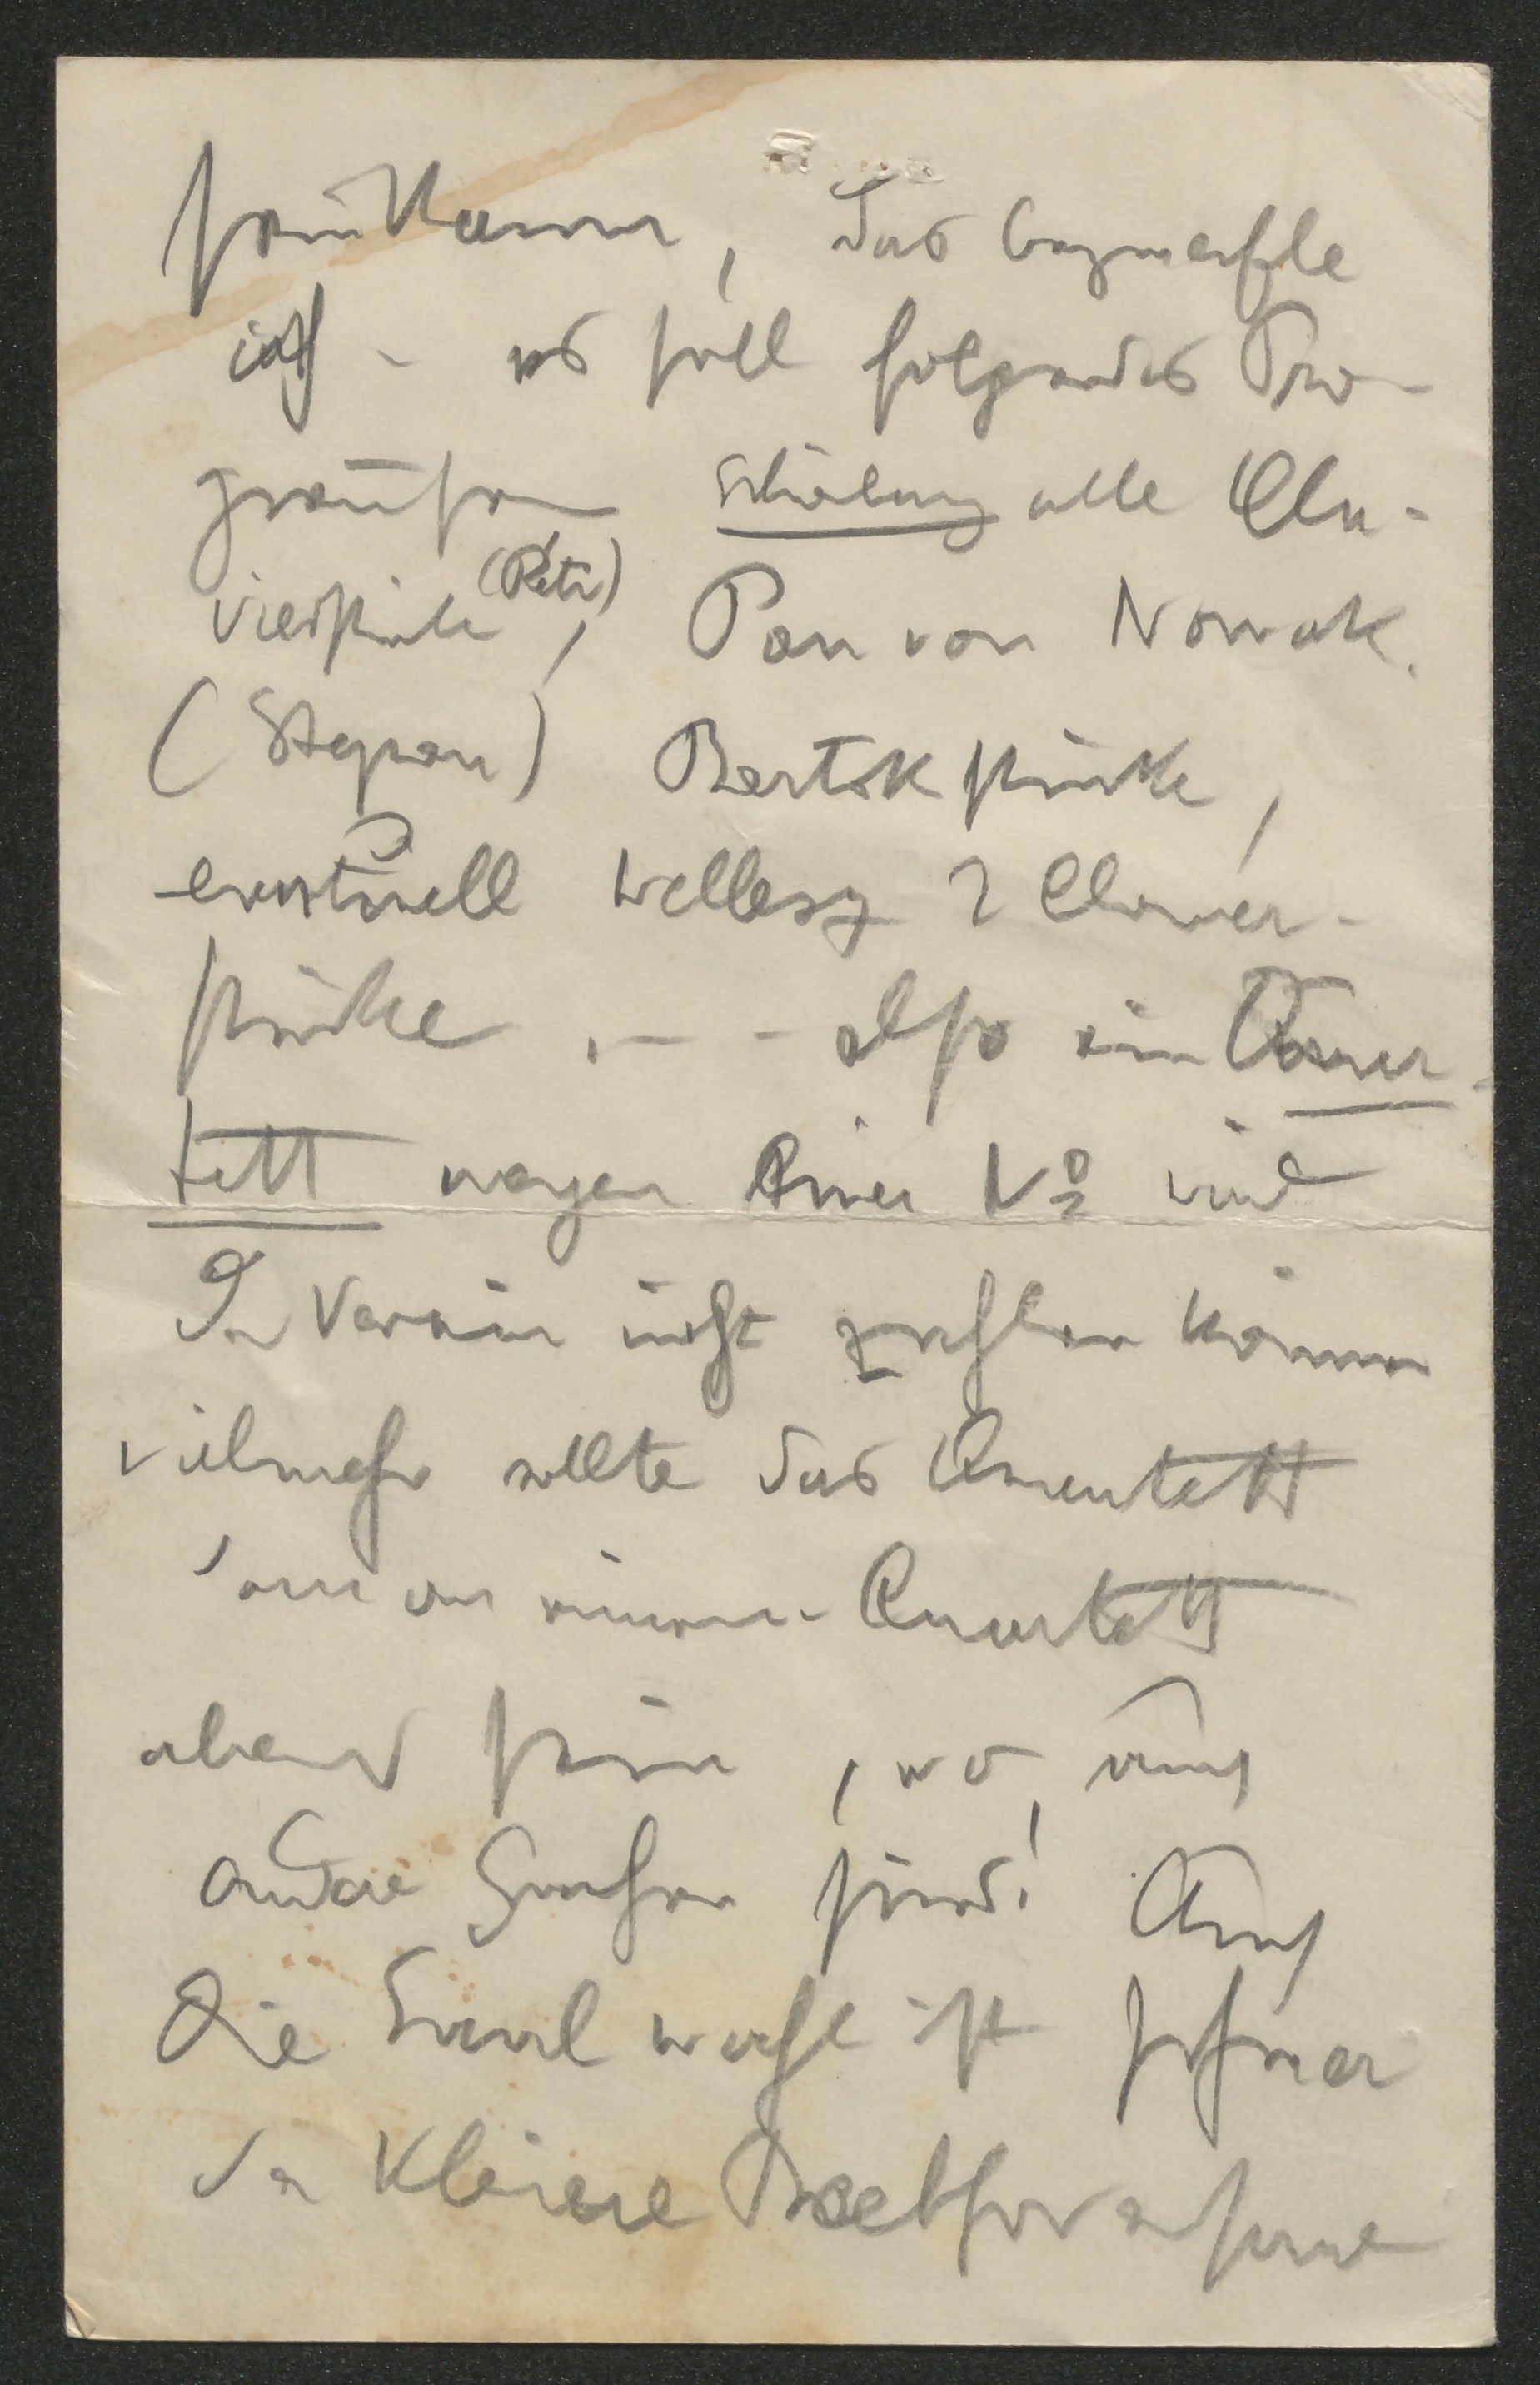 kann, das bezweifle
ich – es soll folgendes Pro-
gramm sein Schönberg alle Cla-
vierstücke (Petri), Pan von Novak.
(Stepan) Bartok stücke,
eventuell Wellesz 2 Clavier-
stücke, – – also ein Quar-
tett wegen einer No wird
der Verein nicht zahlen können
vielmehr sollte das Quartett
dann an einem Quartett
abend sein, wo auch
andere Sachen sind! Auch
die Saal wahl ist schwer
der kleine Beethovensaal